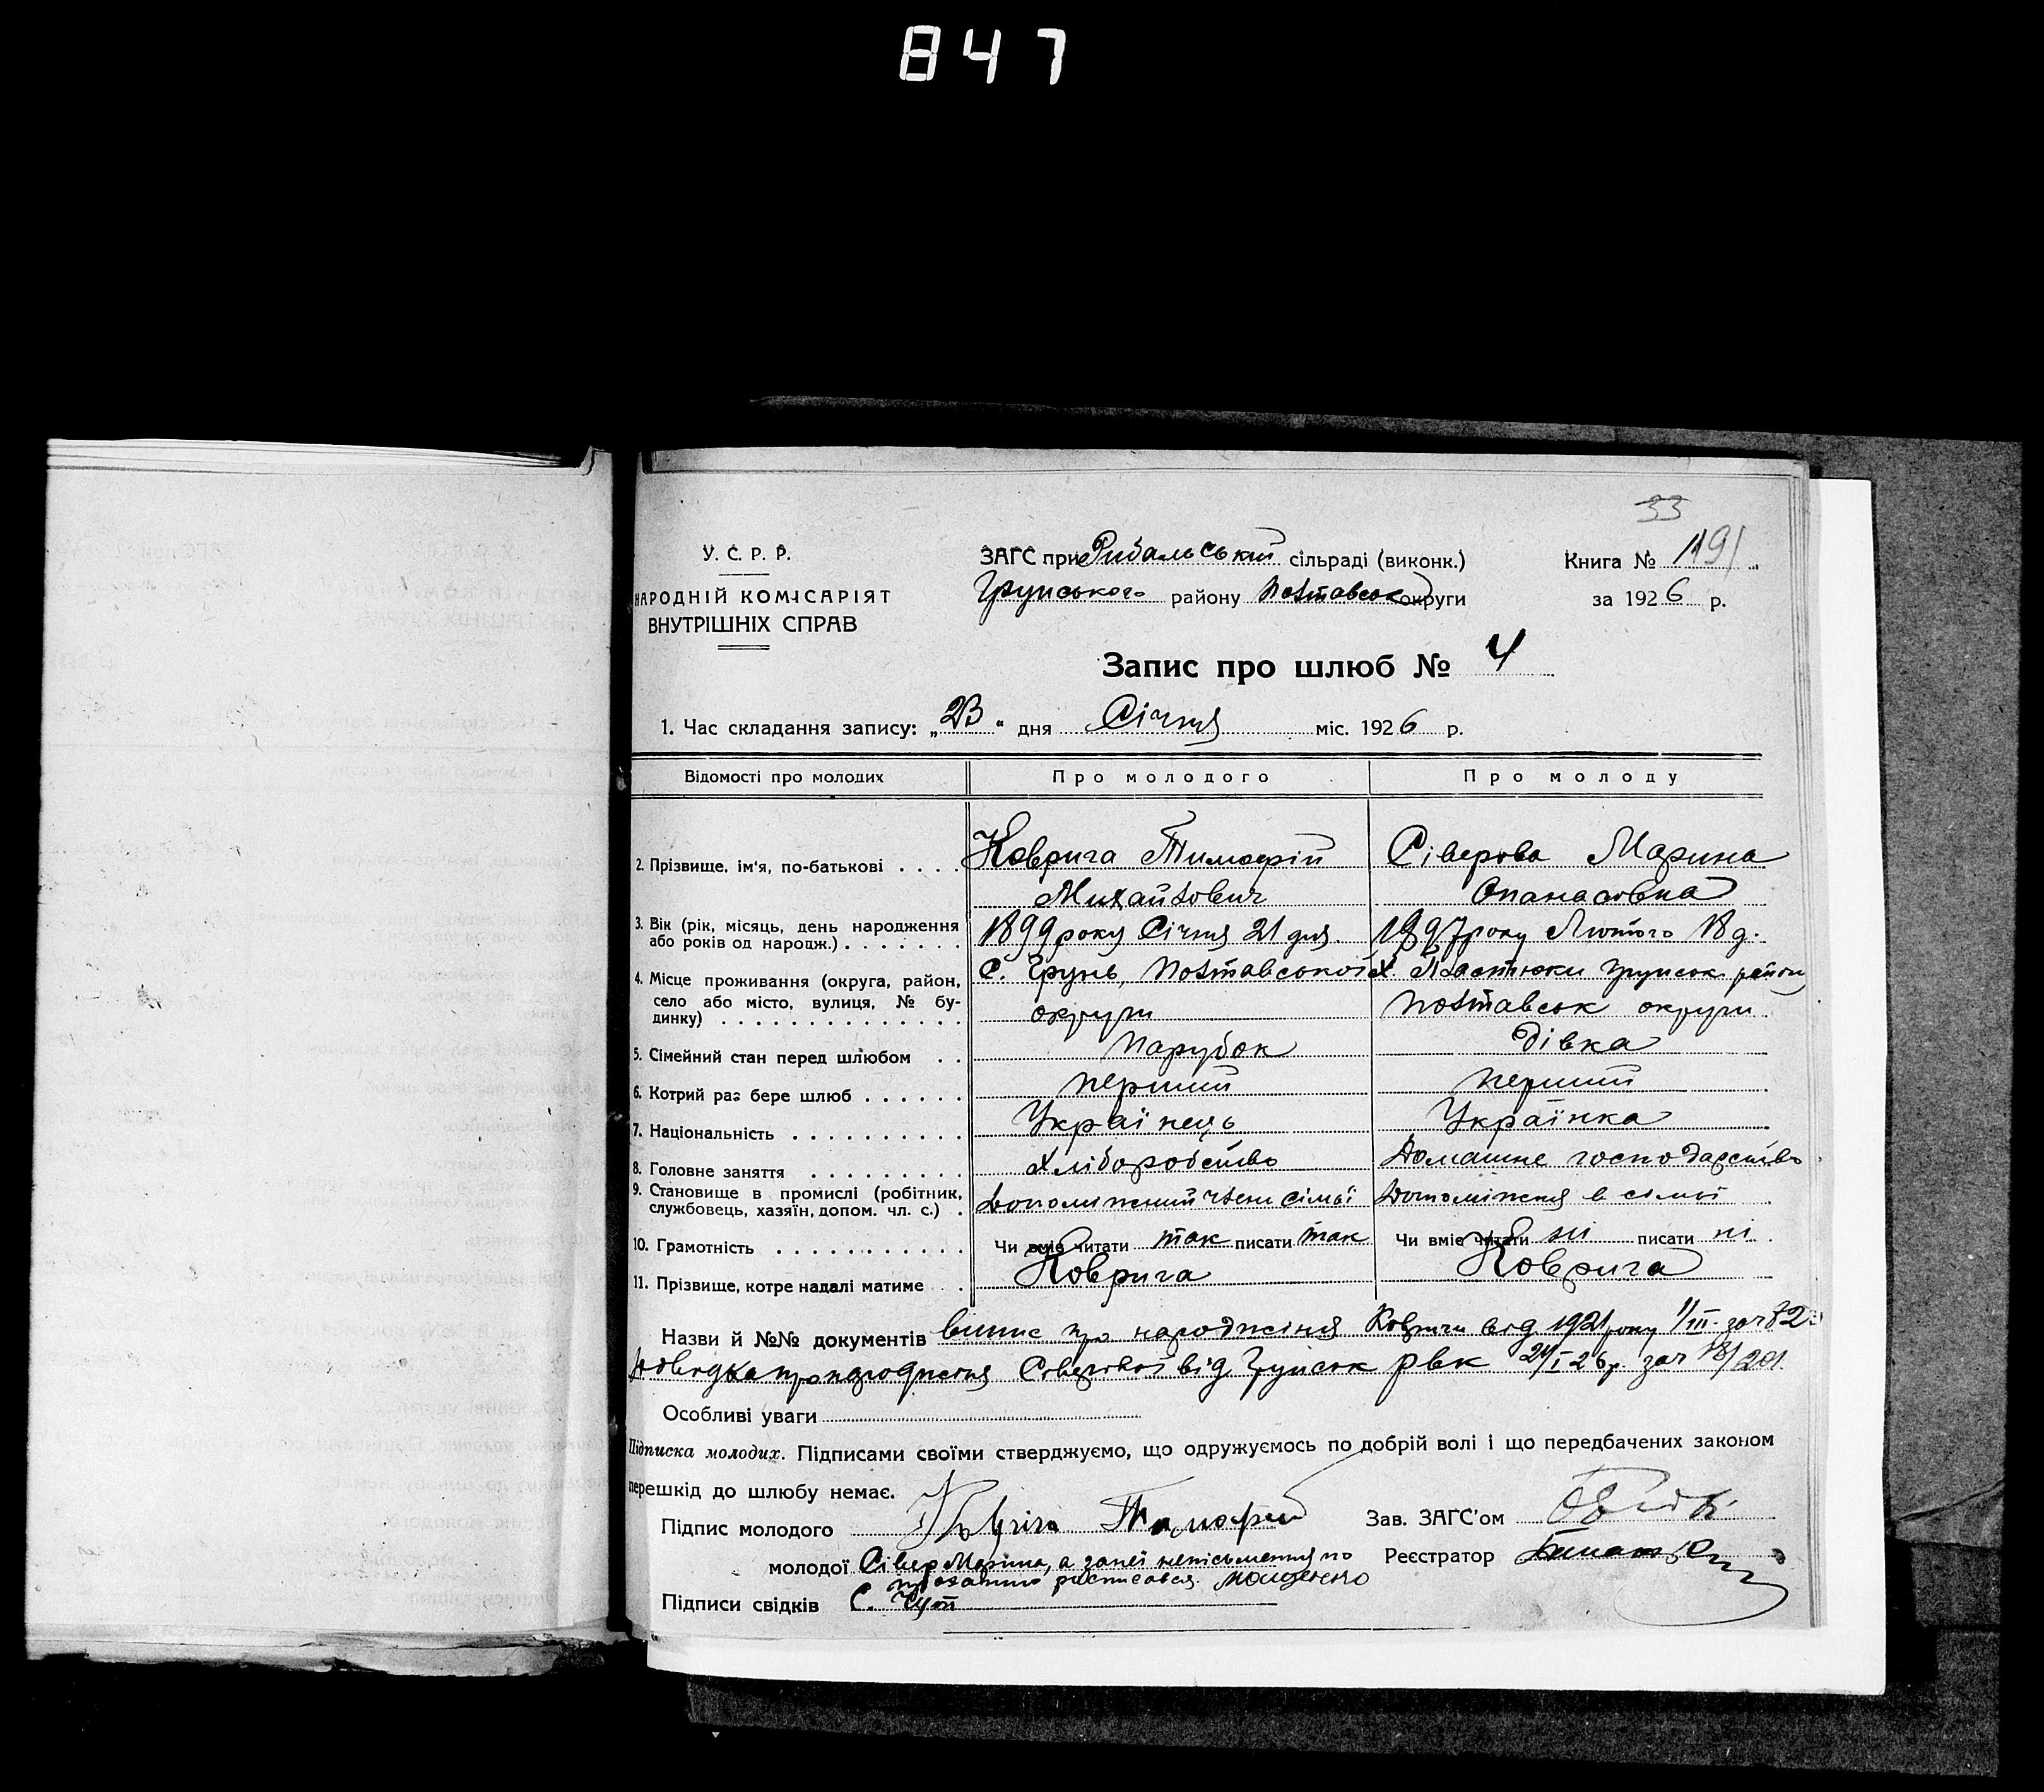 847
33
У. С. Р. Р.
НАРОДНІЙ КОМІСАРІЯТ
ВНУТРІШНІХ СПРАВ
ЗАГС при Рибальській сільраді (виконк.)
Грунського району Полтавськ округи
Книга №
за 1926 р.
Запис про шлюб № 4
1. Час складання запису: „23“ дня Січня міс. 1926 р.
Відомості про молодих Про молодого Про молоду
2. Прізвище, ім'я, по-батькові . . . . Коврига Тимофій Сіверова Марина
Михайлович Опанасовна
3. Вік (рік, місяць, день народження
або років од народж.) . . . . . . . 1899 року Січня 21 дня. 1897 року Лютого 18 д.
4. Місце проживання (округа, район,
село або місто, вулиця, № бу-
динку) . . . . . . . . . . . . . .
С. Грунь, Полтавської Х. Грунськ. району
округи Полтавськ округи
5. Сімейний стан перед шлюбом . . Парубок Дівка
6. Котрий раз бере шлюб . . . . . . перший перший
7. Національність . . . . . . . . . . Українець Українка
8. Головне заняття . . . . . . . . . Хліборобство Домашне господарство
9. Становище в промислі (робітник,
службовець, хазяїн, допом. чл. с.) . Допоміжний член сімьї Допоміжня в сімьї
10. Грамотність . . . . . . . . . . . Чи вміє читати так писати так Чи вміє читати ні писати ні
11. Прізвище, котре надалі матиме . . Коврига Коврига
Назви й №№ документів випис про народжіння Ковриги від 1921 року 1/III
Довидка про Сіверової від Грунськ РВК
Особливі уваги
Підписка молодих. Підписами своїми стверджуємо, що одружуємось по добрій волі і що передбачених законом
перешкід до шлюбу немає.
Підпис молодого Тимофей Зав. ЗАГС'ом
молодої Сівер Марина, а за неї неписьменния по Реєстратор
Підписи свідків С.